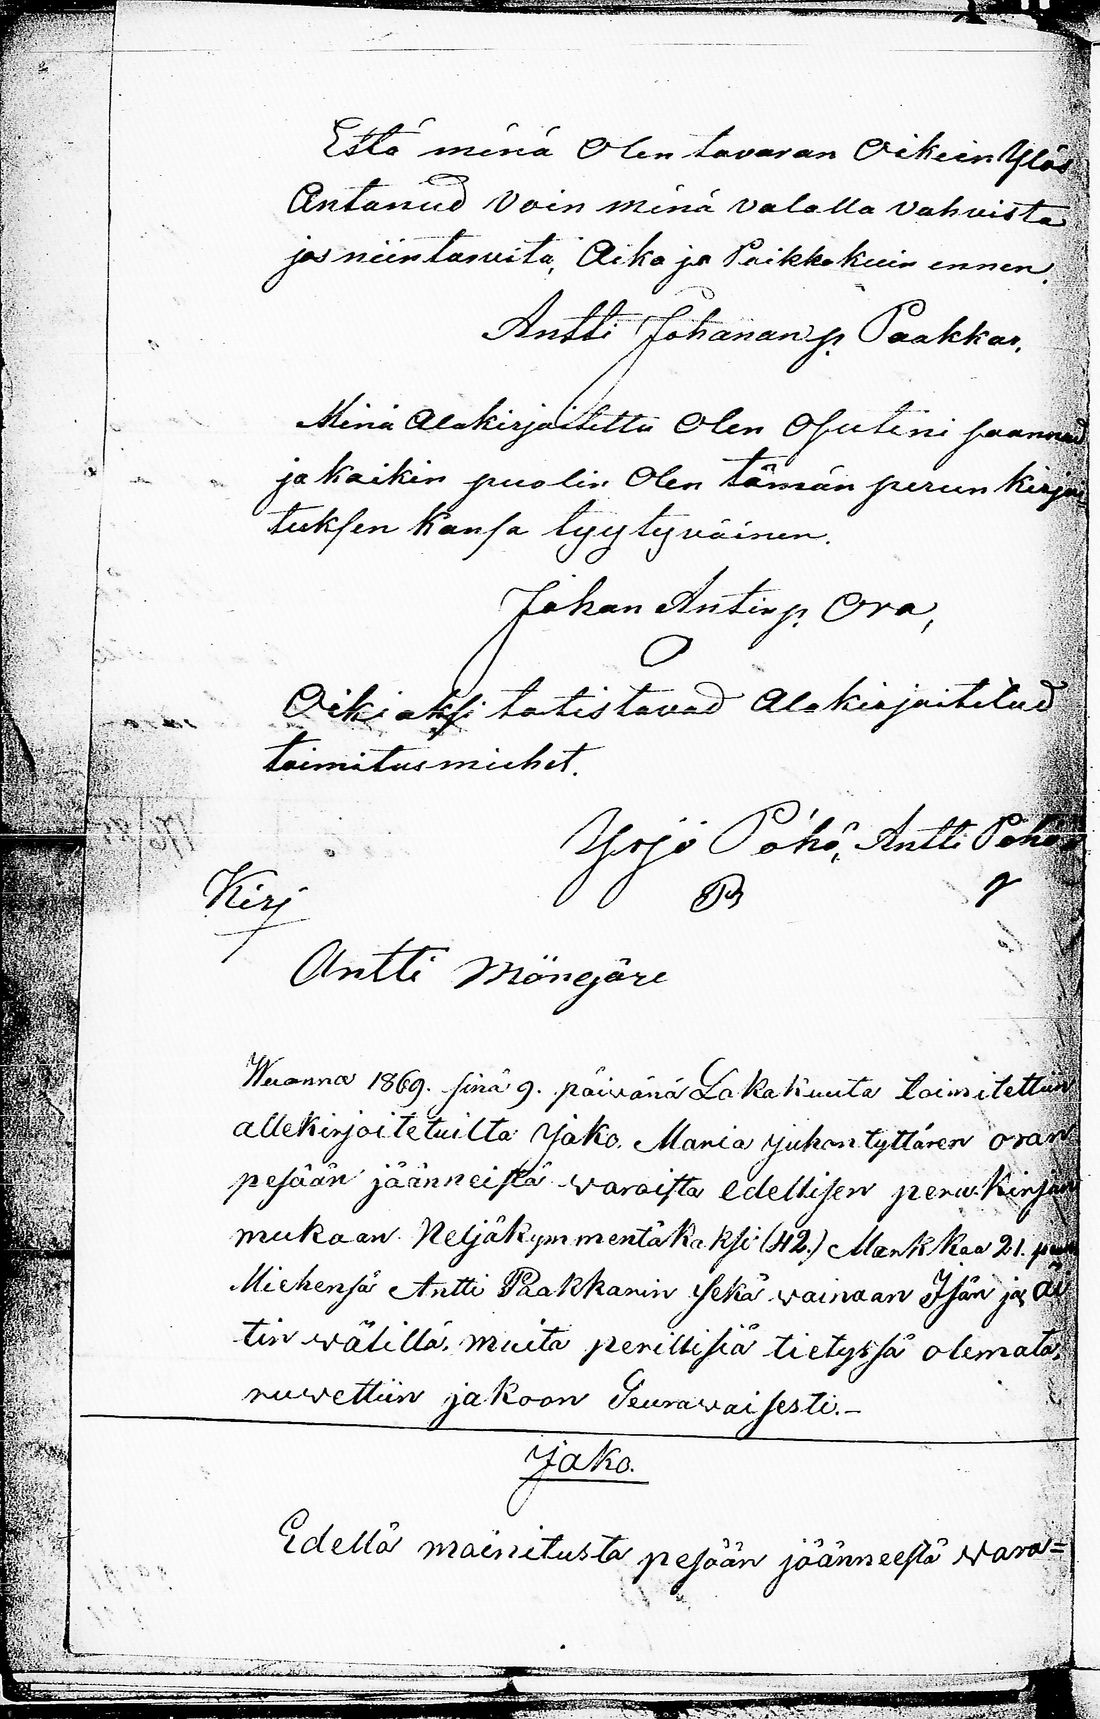 Että minä Olen tavaran Oikein Ylös
Antanud Voin minä valalla vahvista
jos niin tarvita, Aika ja Paikka kuin ennen.
Antti Johananp. Paakkar,
Minä Alakirjoitettu Olen Osuteni saannud
ja kaikin puolin Olen tämän perun kirjoi-
tuksen kansa tyytyväinen.
Johan Antinp. Ora,
Oikiaksi totistavad Alakirjoitetud
toimitusmiehet.
Yrjö Pöhö, Antti Pöhö
Kirj
Antti Möngäre
Wuonna 1869. sinä 9. päiwänä Lokakuuta toimitettiin
allekirjoitetuilta Jako. Maria Juhontyttären oran
pesään jäänneistä waroista edellisen peru.Kirjan
mukaan. Neljäkymmentäkaksi (42.) Markkaa 21. pen
Miehensä Antti Paakkarin sekä wainaan Isän ja äi
tin wälillä, muita perillisiä tietyssä olemata,
ruwettiin jakoon Seurawaisesti.-
Jako.
Edellä mainitusta pesään jäänneestä wara=